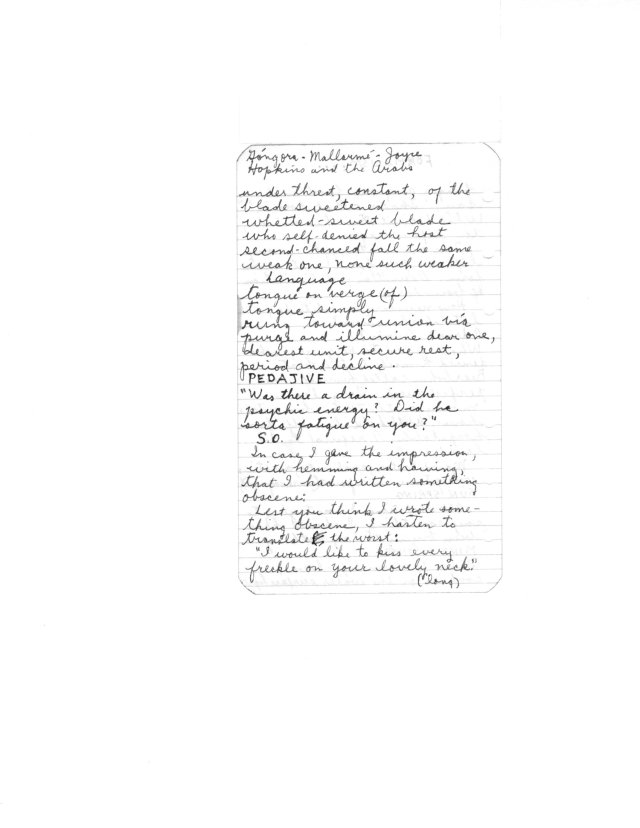 Góngora - Mallarmé - Joyce
Hopkins and the Arabs
under threat, constant, of the
blade sweetened
whetted-sweet blade
who self-denied the host
second-chanced fall the same
weak one, none such weaker
language
tongue on verge (of)
tongue simply
rung toward union via
purge and illumine dear one,
dearest unit, secure rest,
period and decline.
PEDAJIVE
"Was there a drain in the
psychic energy? Did he
sorta fatigue on you?"
S.O.
In case I gave the impression,
with hemming and hawing,
that I had written something
obscene:
Lest you think I wrote some-
thing obscene, I hasten to
translate the worst:
"I would like to kiss every
freckle on your lovely neck."
("long)